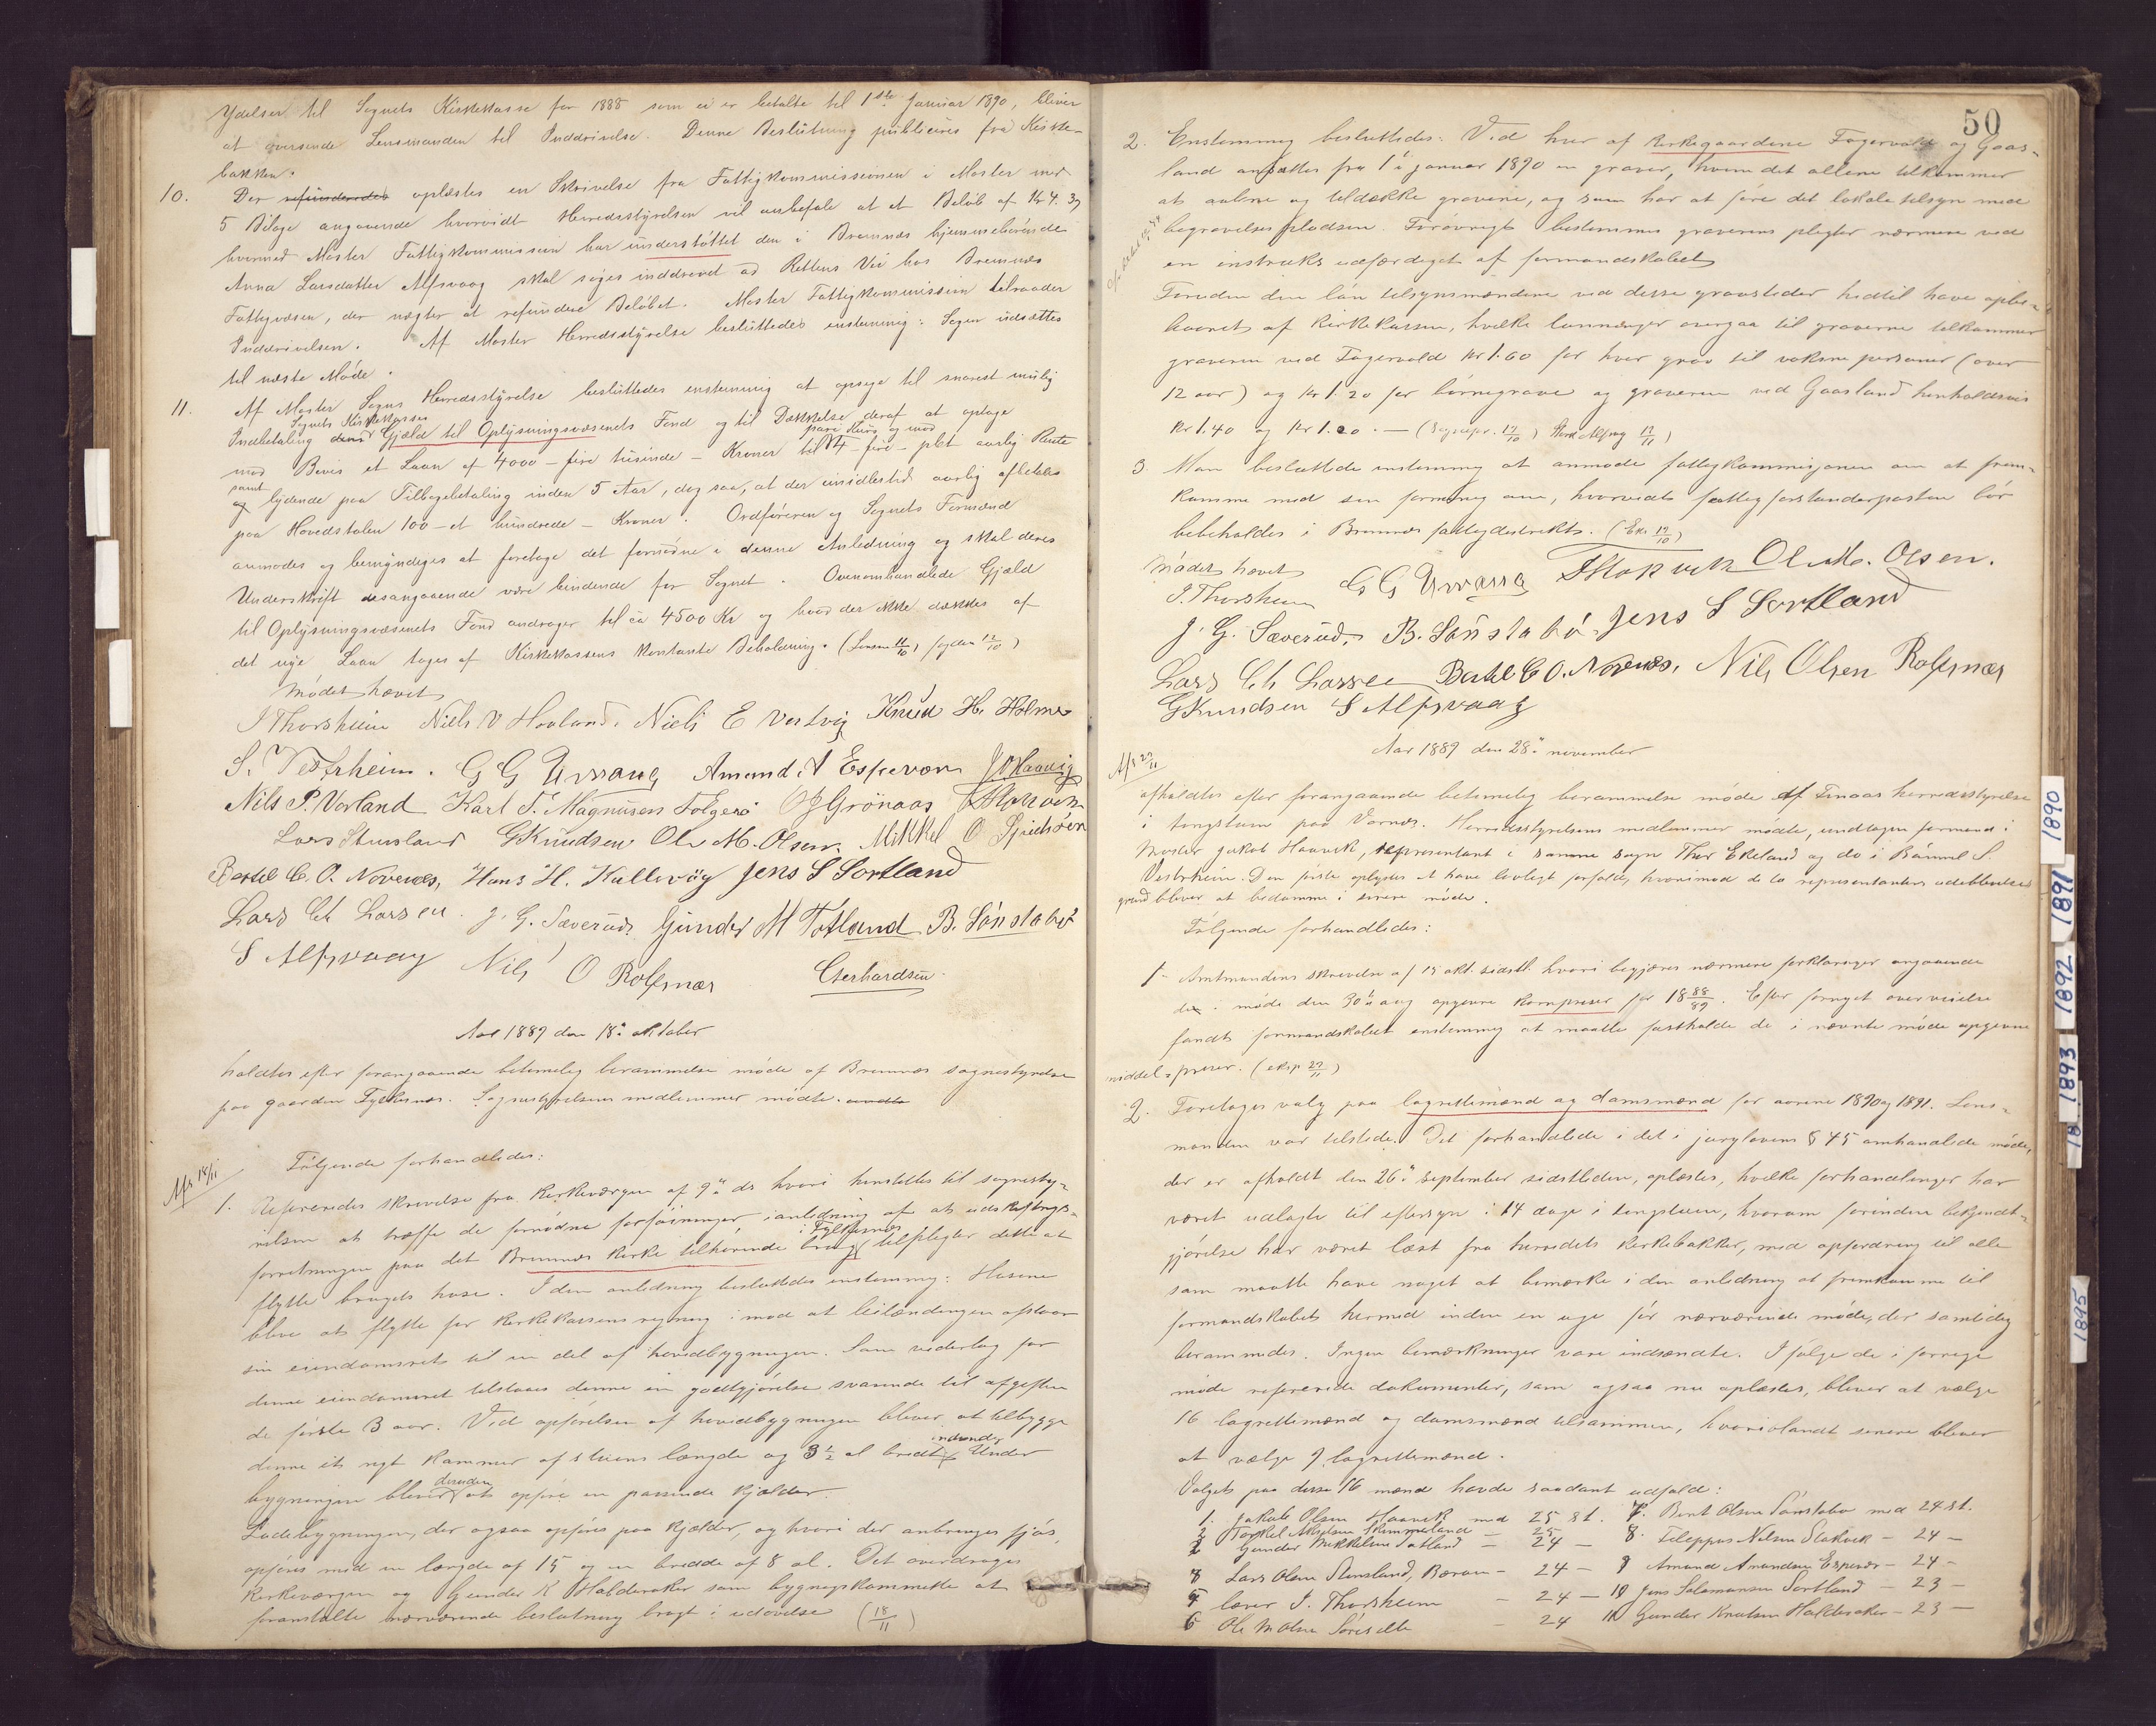 Ydelser til Sognets Kirkekasse for 1888 som ei er betalte til 1ste Januar 1890, bliver
at oversende Lensmanden til Inddrivelse. Denne Beslutning publiceres fra Kirke-
bakken.
10. Der refunderedes oplæstes en Skrivelse fra Fattigkommissionen i Moster med
5 Bilage angaaende hvorvidt Herredsstyrelsen vil anbefale at et Beløb af Kr 4.39
hvormed Moster Fattigkommission har understøttet den i Bremnes hjemmehørende
Anna Larsdatter Alfsvaag skal søges inddrevet ad Rettens Vei hos Bremnes
Fattigvæsen, der nægter at refundere Beløbet. Moster Fattigkommission tilraader
Inddrivelsen. Af Moster Herredsstyrelse besluttedes enstemmig: Sagen udsættes
til næste Møde.
11. Af Moster Sogns Herredsstyrelse besluttedes enstemmig at opsige til snarest mulig
Sognets Kirkekasses
Indbetaling dens Gjæld til Oplysningsvæsenets Fond og til Dækkelse deraf at optage
pari Kurs og mod
mod Bevis et Laan af 4000 - fire tusinde - Kroner til 4 - fire - pct aarlig Rente
samt
og lydende paa Tilbagebetaling inden 5 Aar, dog saa, at der imidlertid aarlig afbetales
paa Hovedstolen 100 - et hundrede - Kroner. Ordføreren og Sognets Formænd
anmodes og bemyndiges at foretage det fornødne i denne Anledning og skal deres
Underskrift desangaaende være bindende for Sognet. Ovenomhandlede Gjæld
til Oplysningsvæsenets Fond andrager til ca 4500 Kr og hvad der ikke dækkes af
det nye Laan tages af Kirkekassens kontante Beholdning. (Lensm 11/10, fogden 12/10)
Mødet hævet
J Thorsheim Niels V Hovland. Niels E Vestvig Knud H. Holme
S. Vestrheim. G G Urvang Amund A Espevær J O Haavig
Nils P. Vorland Karl T. Magnusen Folgerø O J Grönaas F Stokvik
Lars Stensland GKnudsen Ole M. Olsen. Mikkel O
Bertel C. O. Novenes, Hans H. Kallevåg Jens S Sortland
Lars Ch Larsen. J. G. Sæverud, Gunder M Totland B. Sönstabø
S Alfsvaag Nils O Rolfsnæs Gerhardsen.
Aar 1889 den 18de oktober
holdtes efter forangaaende betimelig berammelse møde af Bremnes sognestyrelse
paa gaarden Fylkesnæs. Sognestyrelsens medlemmer mødte.
Følgende forhandledes:
Afs 18/11
1. Refereredes skrivelse fra kirkeværgen af 9de ds hvori henstilles til sognesty-
relsen at træffe de fornødne forføininger i anledning af at udskiftnings-
i Fylkesnæs
forretningen paa det Bremnæs kirke tilhørende brug tilpligter dette at
flytte brugets huse. I den anledning besluttedes enstemmig: Husene
blive at flytte for kirkekassens regning imod at leilændingen opløser
sin eiendomsret til en del af hovedbygningen. Som vederlag for
denne eiendomsret tilstaaes denne en godtgjørelse svarende til afgiften
de første 3 aar. Ved opførelsen af hovedbygningen bliver at tilbygge
indvendig
denne et nyt kammer af stuens længde og 3½ al bredt. Under
desuden
bygningen bliver at opføre en passende kjælder.
Ladebygningen, der ogsaa opføres paa kjælder, og hvori der anbringes fjøs,
opføres med en længde af 15 og en bredde af 8 al. Det overdrages
kirkeværgen og Gunder K Halderaker som bygningskommitte at
foranstalte nærværende beslutning bragt i udøvelse (18/11)
50
2. Enstemmig besluttedes: Ved hver af kirkegaardene Fagervold og Gaas-
land ansættes fra 1ste januar 1890 en graver, hvem det allene tilkommer
at aabne og tildække gravene, og som har at føre det lokale tilsyn med
begravelsespladsen. Forøvrigt bestemmes graverens pligter nærmere ved
en instruks udfærdiget af formandskabet.
Foruden den løn tilsynsmændene ved disse gravsteder hidtil have oppe-
baaret af kirkekassen, hvilke lønninger overgaa til graverne tilkommer
graveren ved Fagervold Kr 1.60 for hver grav til voksne personer (over
12 aar) og Kr 1.20 for børnegrave og graveren ved Gaasland henholdsvis
Kr 1.40 og Kr 1.20. — (Sognepr. 19/10) Alfsvaag 19/11)
3. Man besluttede enstemmig at anmode fattigkommisjonen om at frem-
komme med sin formening om, hvorvidt fattigforstanderposten bør
bebeholdes i Bremnes fattigdistrikt. (Eks 19/10)
Mødet hævet
J. Thorsheim G G Urvang F Stokvik Ole M. Olsen.
J. G. Sæverud, B. Sönstabø. Jens S Sortland
Lars Ch Larsen Bertel C O. Novenes, Nils Olsen Rolfsnæs
GKnudsen S Alfsvaag
Aar 1889 den 28de november
Afs 29/11
afholdtes efter forangaaende betimelig berammelse møde af Finaas herredsstyrelse
i tingstuen paa Vornes. Herredsstyrelsens medlemmer mødte, undtagen formand i
Moster Jakob Haavik, repræsentant i samme sogn Thor Ekeland og do i Bømmel S.
Vestrheim. Den første oplystes at have lovligt forfald, hvorimod de to repræsentanters udeblivelses
grund bliver at bedømme i senere møde.
Følgende forhandledes:
1. Amtmandens skrivelse af 15 okt. sidstl. hvori begjæres nærmere forklaringer angaaende
de i møde den 30te aug opgivne kornpriser for 1888/89. Efter fornyet overveielse
fandt formandskabet enstemmig at maatte fastholde de i nævnte møde opgivne
middelspriser. (eksp 29/11)
2. Foretoges valg paa lagrettemænd og domsmænd for aarene 1890 og 1891. Lens-
manden var tilstede. Det forhandlede i det i jurylovens § 45 omhandlede møde,
der er afholdt den 26de september sidstleden, oplæstes, hvilke forhandlinger har
været udlagte til eftersyn i 14 dage i tingstuen, hvorom forinden bekjendt-
gjørelse har været læst fra herredets kirkebakker, med opfordring til alle
som maatte have noget at bemærke i den anledning at fremkomme til
formandskabet hermed inden en uge før nærværende møde, der samtidig
berammedes. Ingen bemærkninger vare indsendte. Ifølge de i forrige
møde refererede dokumenter, som ogsaa nu oplæstes, bliver at vælge
16 lagrettemænd og domsmænd tilsammen, hvoriblandt senere bliver
at vælge 9 lagrettemænd.
Valget paa disse 16 mænd havde saadant udfald:
1. Jakob Olsen Haavik med 25 st. 7. Bent Olsen Sönstabø med 24 st.
2 Torkel Akselsen Skimmeland — 25 — 8. Fileppus Nilsen Stokvik — 24 —
3 Gunder Mikkelsen Totland — 24 — 9 Amund Amundsen Espevær — 24 —
4 Lars Olsen Stensland, Børøen — 24 — 10 Jens Salamonsen Sortland — 23 —
5 lærer J. Thorsheim — 24 — 11 Gunder Knutsen Halderaker — 23 —
6 Ole M Olsen — 24
1890
1891
1892
1893
18
1895